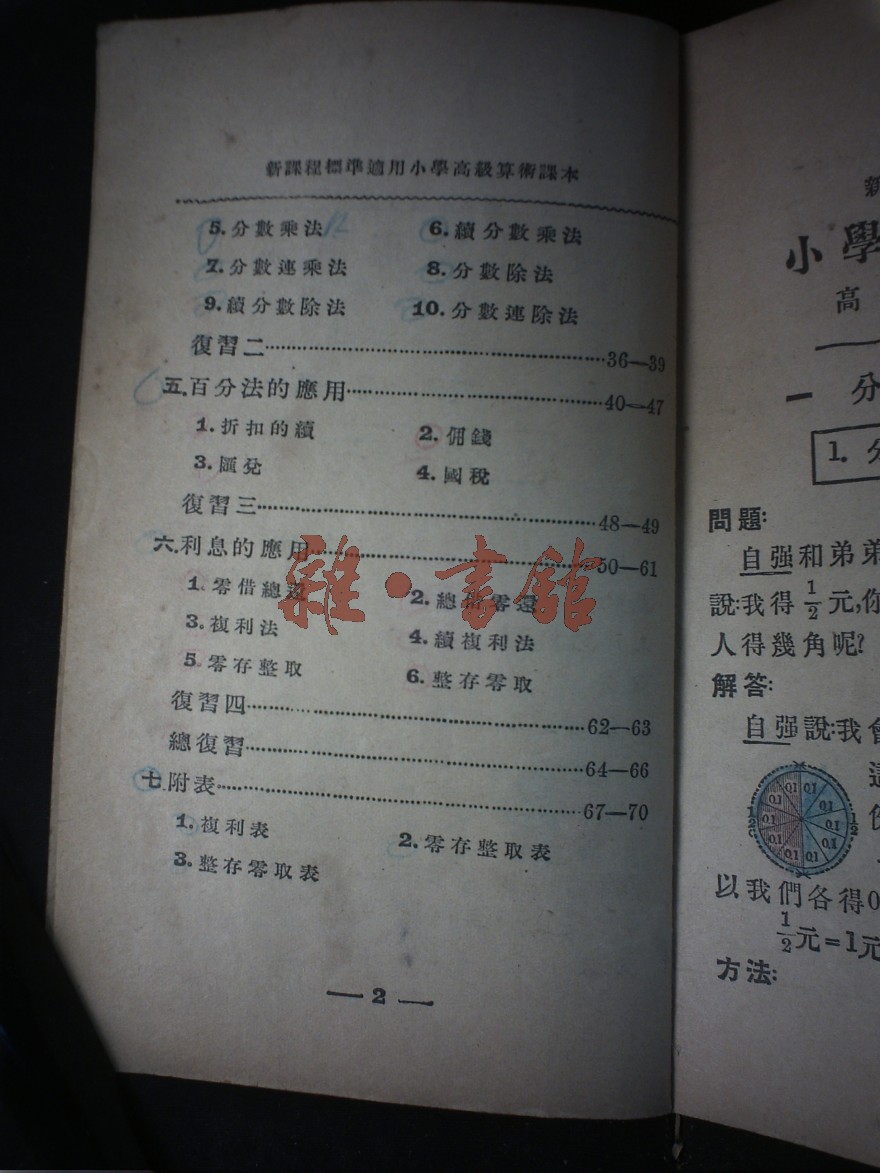 新課程標準適用小學高級算術課本
5.分數乘法 6.續分數乘法
7.分數連乘法 8.分數除法
9.續分數除法 10.分數連除法
復習二 36—39
五.百分法的應用 40—47
1.折扣的續 2.佣錢
3.匯兌 4.國稅
復習三 48—49
六.利息的應用 50—61
1.零借總還 2.總借零還
3.複利法 4.續複利法
5.零存整取 6.整存零取
復習四 62—63
總復習 64—66
七.附表 67—70
1.複利表 2.零存整取表
3.整存零取表
— 2 —
雜·書館
新
小學
高
一 分
1. 分
問題:
自强和弟弟
說:我得1/2元,你
人得幾角呢?
解答:
自强說:我會
這
0.1 0.1 0.1 0.1 0.1 0.1 0.1 0.1 0.1 0.1
1/2 1/2
以我們各得0
1/2元=1元
方法: